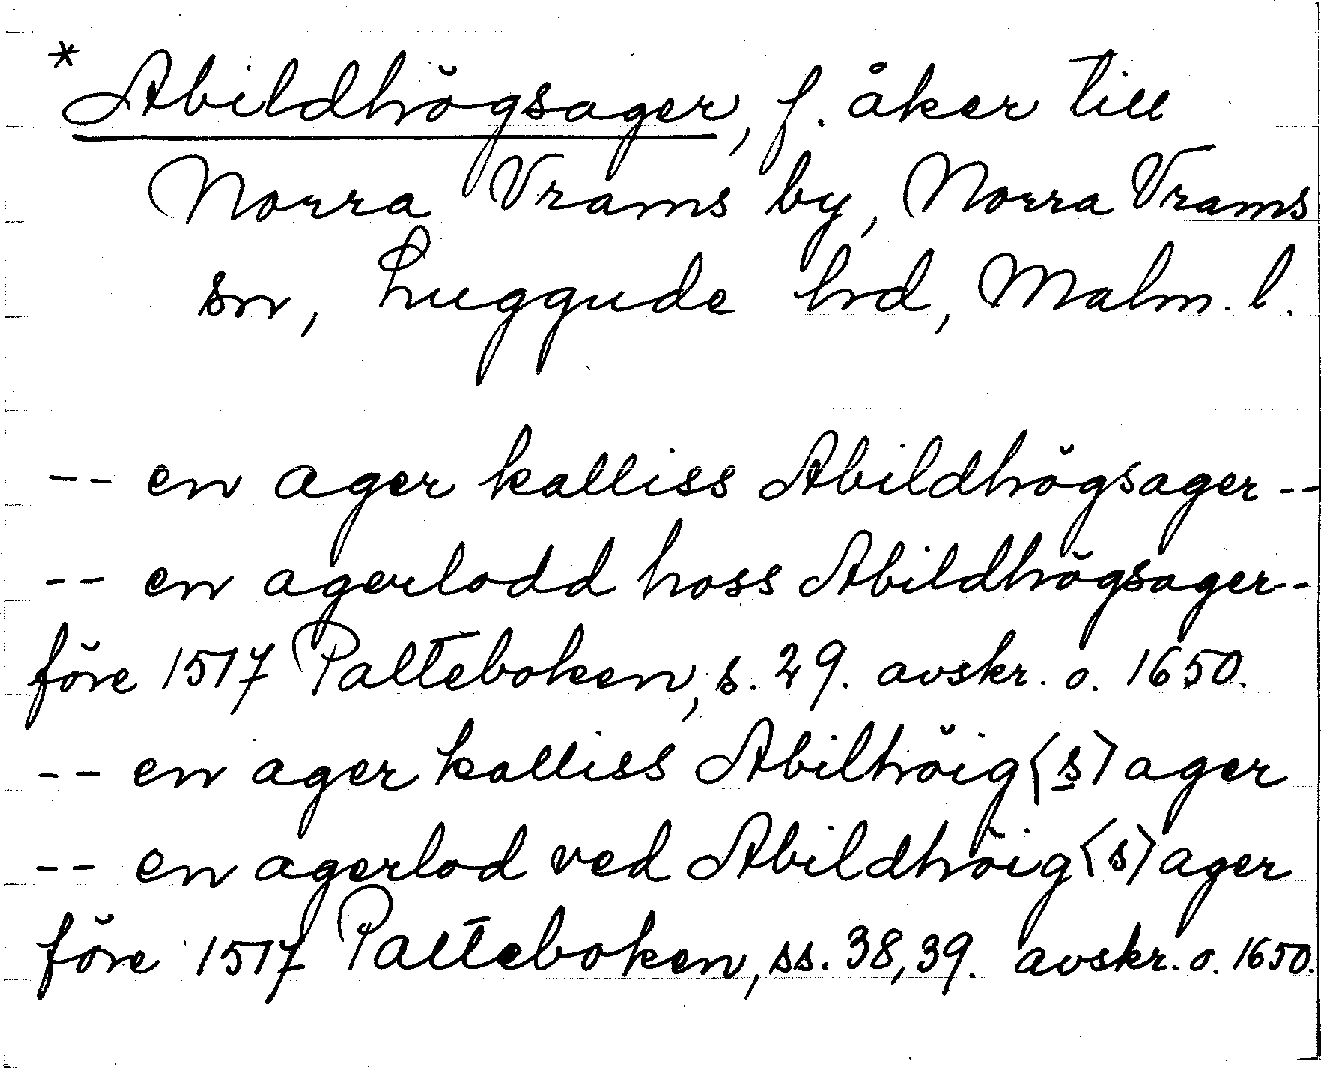 * Abildhögsager, f. åker till
Norra Vrams by, Norra Vrams
sn, Luggude hrd, Malm. l.
-- en ager kalliss Abildhögsager --
-- en agerlodd hoss Abildhögsager --
före 1517 Palteboken, s. 29. avskr. o. 1650.
-- en ager kalliss Abilhöig⟨s⟩ager
-- en agerlod ved Abildhöig⟨s⟩ager
före 1517 Palteboken, ss. 38, 39. avskr. o. 1650.